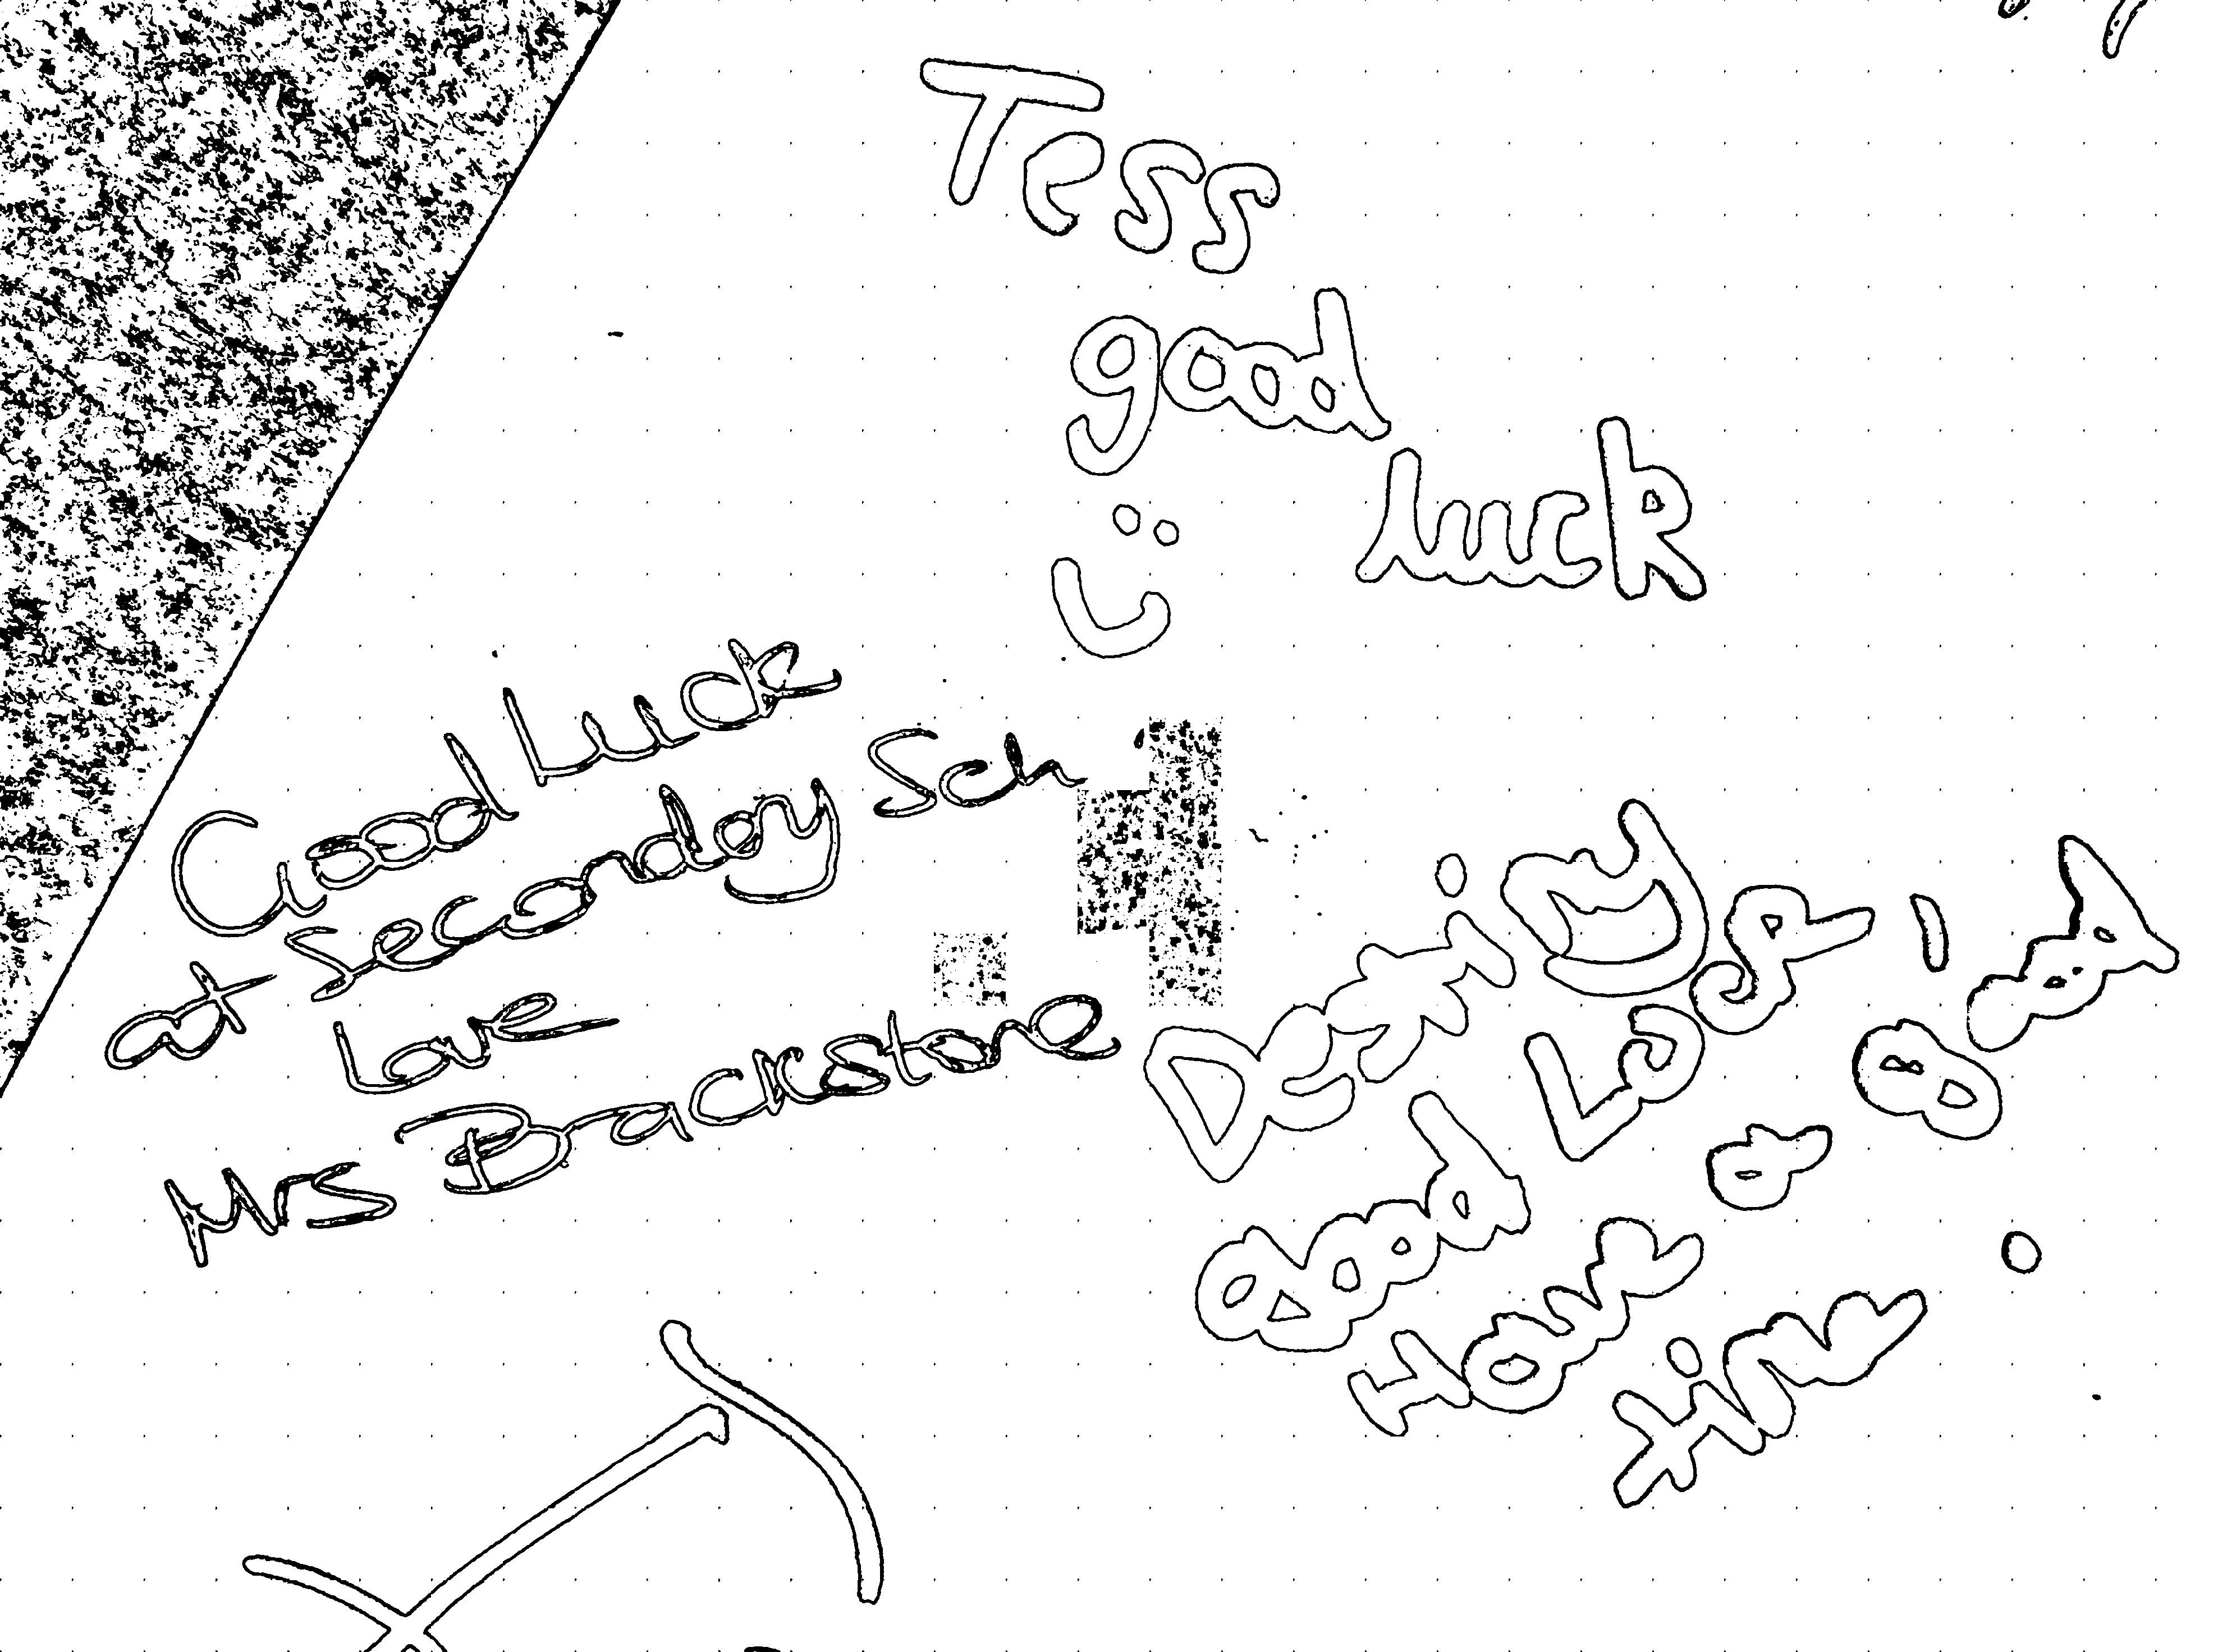 Tess
good
luck
Good Luck
at secondey Sch
Love
Mrs Brackstone
good
Have a good
time